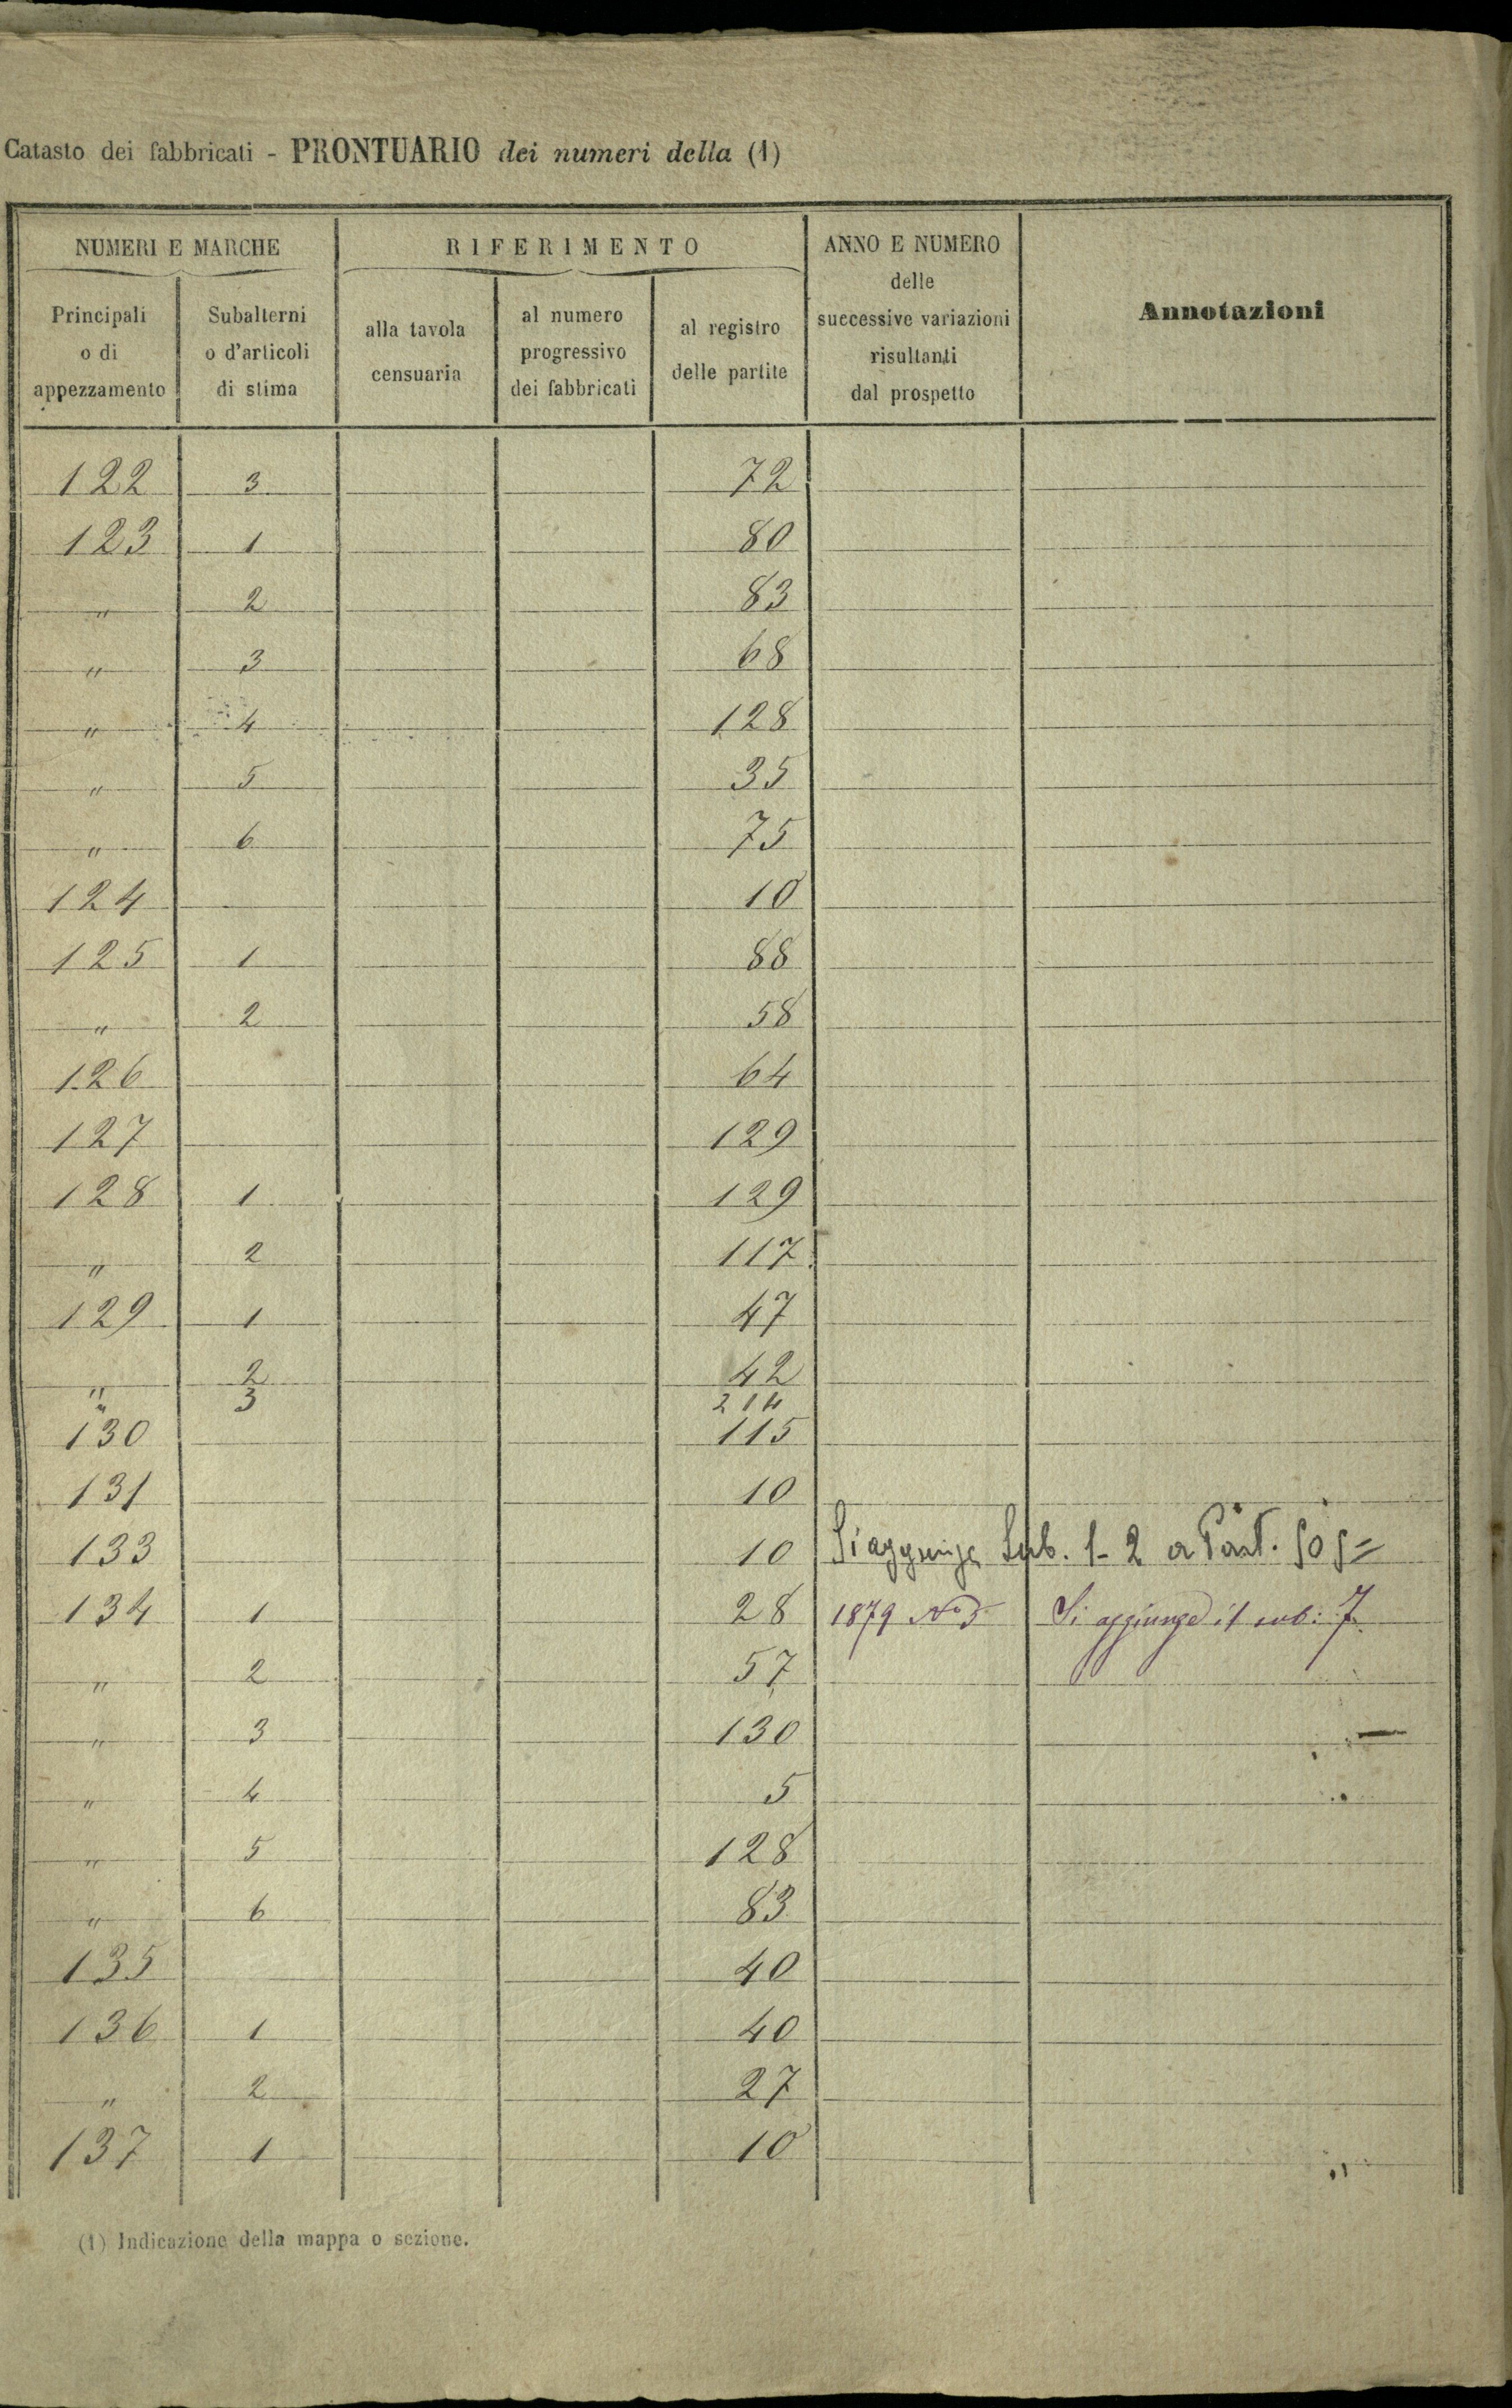 Catasto dei fabbricati - PRONTUARIO dei numeri della (1)
NUMERI E MARCHE
RIFERIMENTO
ANNO E NUMERO
delle
successive variazioni
risultanti
dal prospetto
Annotazioni
Principali
o di
appezzamento
Subalterni
o d'articoli
di stima
alla tavola
censuaria
al numero
progressivo
dei fabbricati
al registro
delle partite
122 3 72
123 1 80
" 2 83
" 3 68
" 4 128
" 5 35
" 6 75
124 10
125 1 88
" 2 58
126 64
127 129
128 1 129
" 2 117
129 1 47
" 2 42
" 3 214
130 115
131 10
133 10 Si aggiunge Sub. 1-2 a Part.
134 1 28 1879 No 5 Si aggiunge il sub: 7
" 2 57
" 3 130
" 4 5
" 5 128
" 6 83
135 40
136 1 40
" 2 27
137 1 10
(1) Indicazione della mappa o sezione.